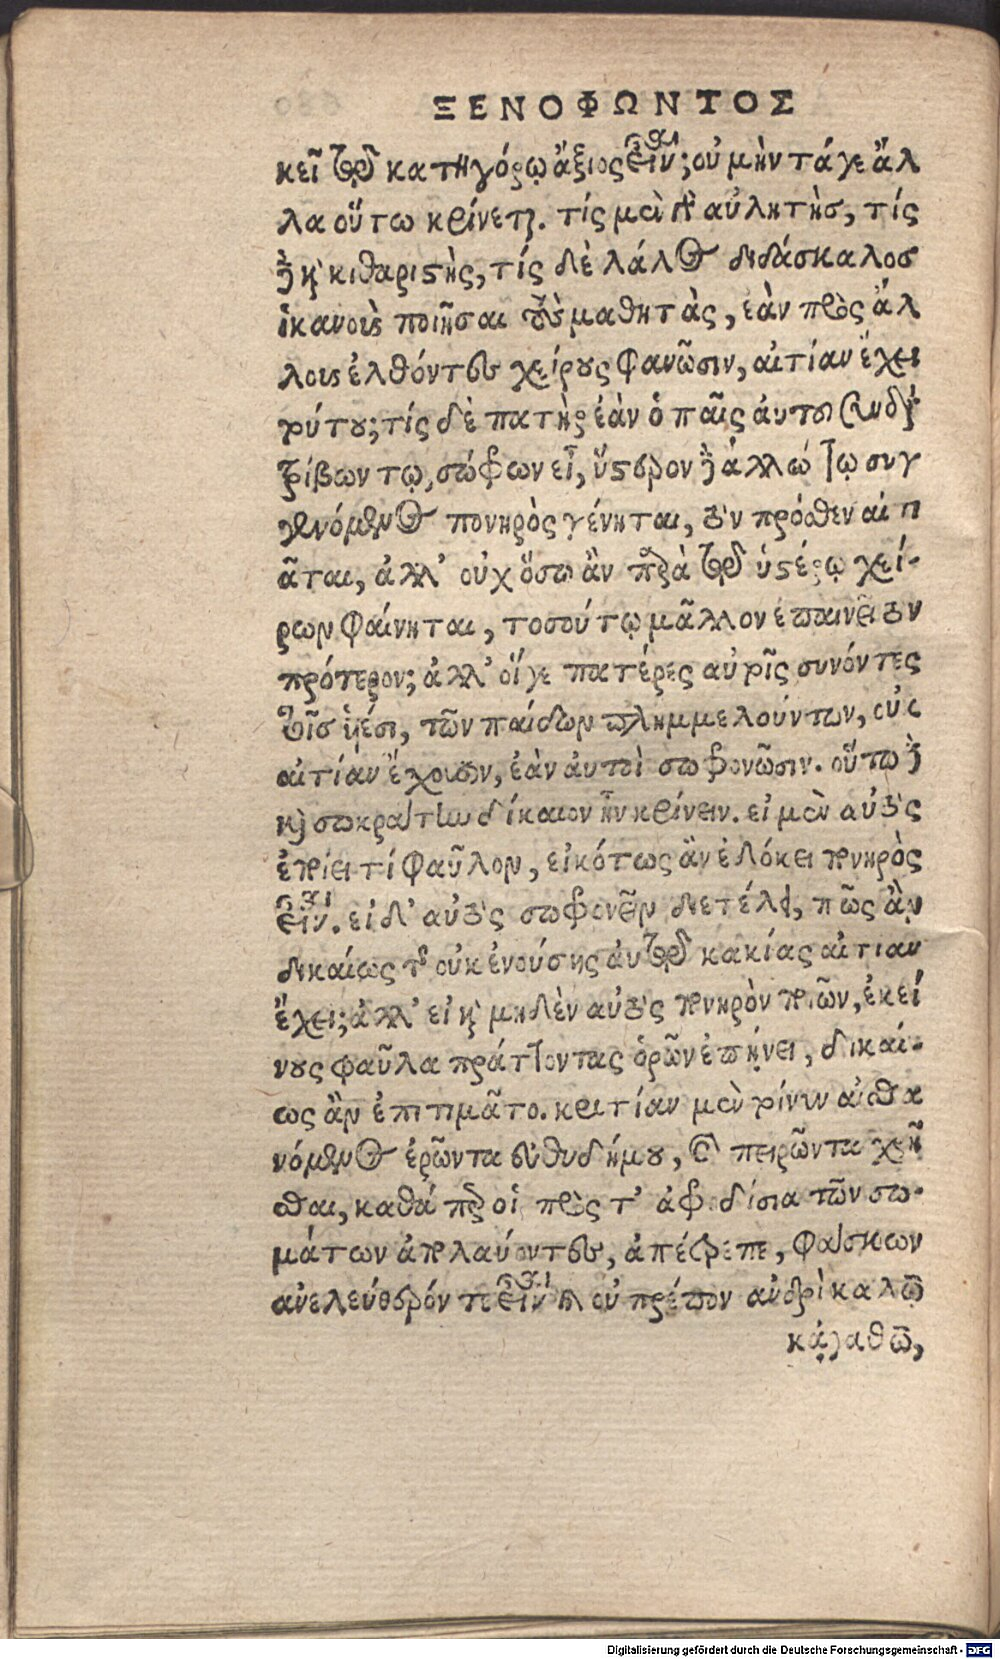 ΞΕΝΟΦΩΝΤΟΣ
κεῖ τοῦ κατηγόρῳ ἄξιος εἶναι; οὐ μὴν τά γε ἄλ
λα οὕτω κρίνεται. τίς μὲν γὰρ αὐλητὴς, τίς
δὲ καὶ κιθαριστὴς, τίς δὲ ἄλλος διδάσκαλος
ἱκανοὺς ποιήσαι τοὺς μαθητὰς, ἐὰν πρὸς ἄλ
λους ἐλθόντες χείρους φανῶσιν, αἰτίαν ἔχει
τούτου; τίς δὲ πατὴρ ἐὰν ὁ παῖς αὐτοῦ συνδια
τρίβων τῳ, σώφρων εἴη, ὕστερον δὲ ἄλλῳ τῳ συγ
γενόμενος πονηρὸς γένηται, τὸν πρόσθεν αἰτι
ᾶται, ἀλλ' οὐχ ὅσῳ ἂν παρὰ τοῦ ὑστέρῳ χεί-
ρων φαίνηται, τοσούτῳ μᾶλλον ἐπαινεῖ τὸν
πρότερον; ἀλλ' οἵ γε πατέρες αὐτοῖς συνόντες
τοῖς υἱέσι, τῶν παίδων πλημμελούντων, οὐκ
αἰτίαν ἔχουσιν, ἐὰν αὐτοὶ σωφρονῶσιν. οὕτω δὲ
καὶ σωκράτην δίκαιον ἦν κρίνειν. εἰ μὲν αὐτὸς
ἐποίει τί φαῦλον, εἰκότως ἂν ἐδόκει πονηρὸς
εἶναι. εἰ δ' αὐτὸς σωφρονῶν διετέλει, πῶς ἂν
δικαίως τῆς οὐκ ἐνούσης αὐτοῦ κακίας αἰτίαν
ἔχει; ἀλλ' εἰ καὶ μηδὲν αὐτὸς πονηρὸν ποιῶν, ἐκεί
νους φαῦλα πράττοντας ὁρῶν ἐπῄνει, δικαί-
ως ἂν ἐπιτιμᾶτο. κριτίαν μὲν τοίνυν αἰσθα
νόμενος ἐρῶντα εὐθυδήμου, καὶ πειρῶντα χρῆ
σθαι, καθάπερ οἱ πρὸς τ' ἀφροδίσια τῶν σω-
μάτων ἀπολαύοντες, ἀπέτρεπε, φάσκων
ἀνελεύθερόν τε εἶναι καὶ οὐ πρέπον ἀνδρὶ καλῷ
κἀγαθῷ,
Digitalisierung gefördert durch die Deutsche Forschungsgemeinschaft - DFG